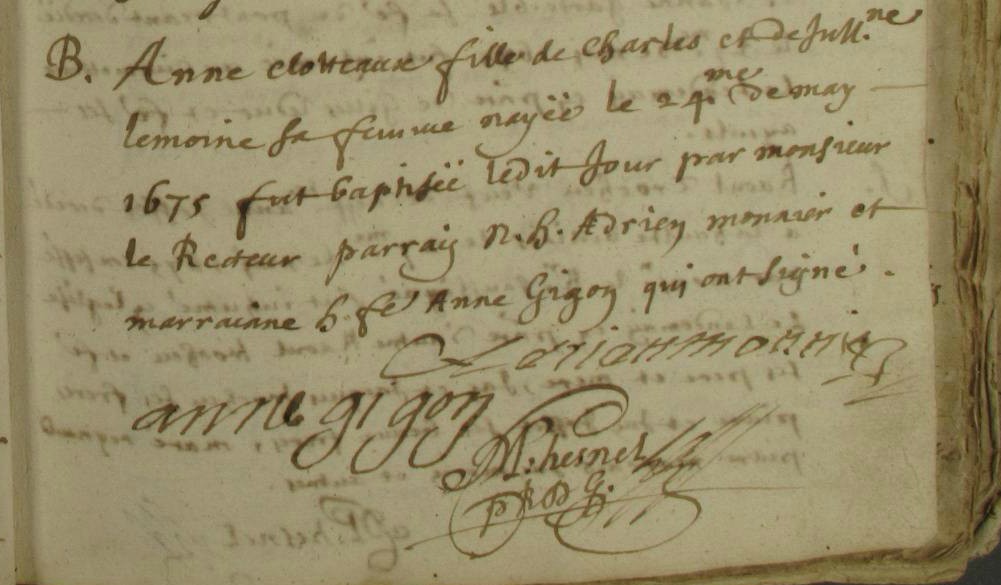 B. Anne clotteaux fille de Charles et de Jull.ne
lemoine sa femme nayëë le 24me de may
1675 fut baptisëë ledit Jour par monsieur
le Recteur parrain N. h. Adrien monnier et
marraiane h. fe Anne Gigon qui ont signé.
Adrien monnier
anne gigon
Chesnel